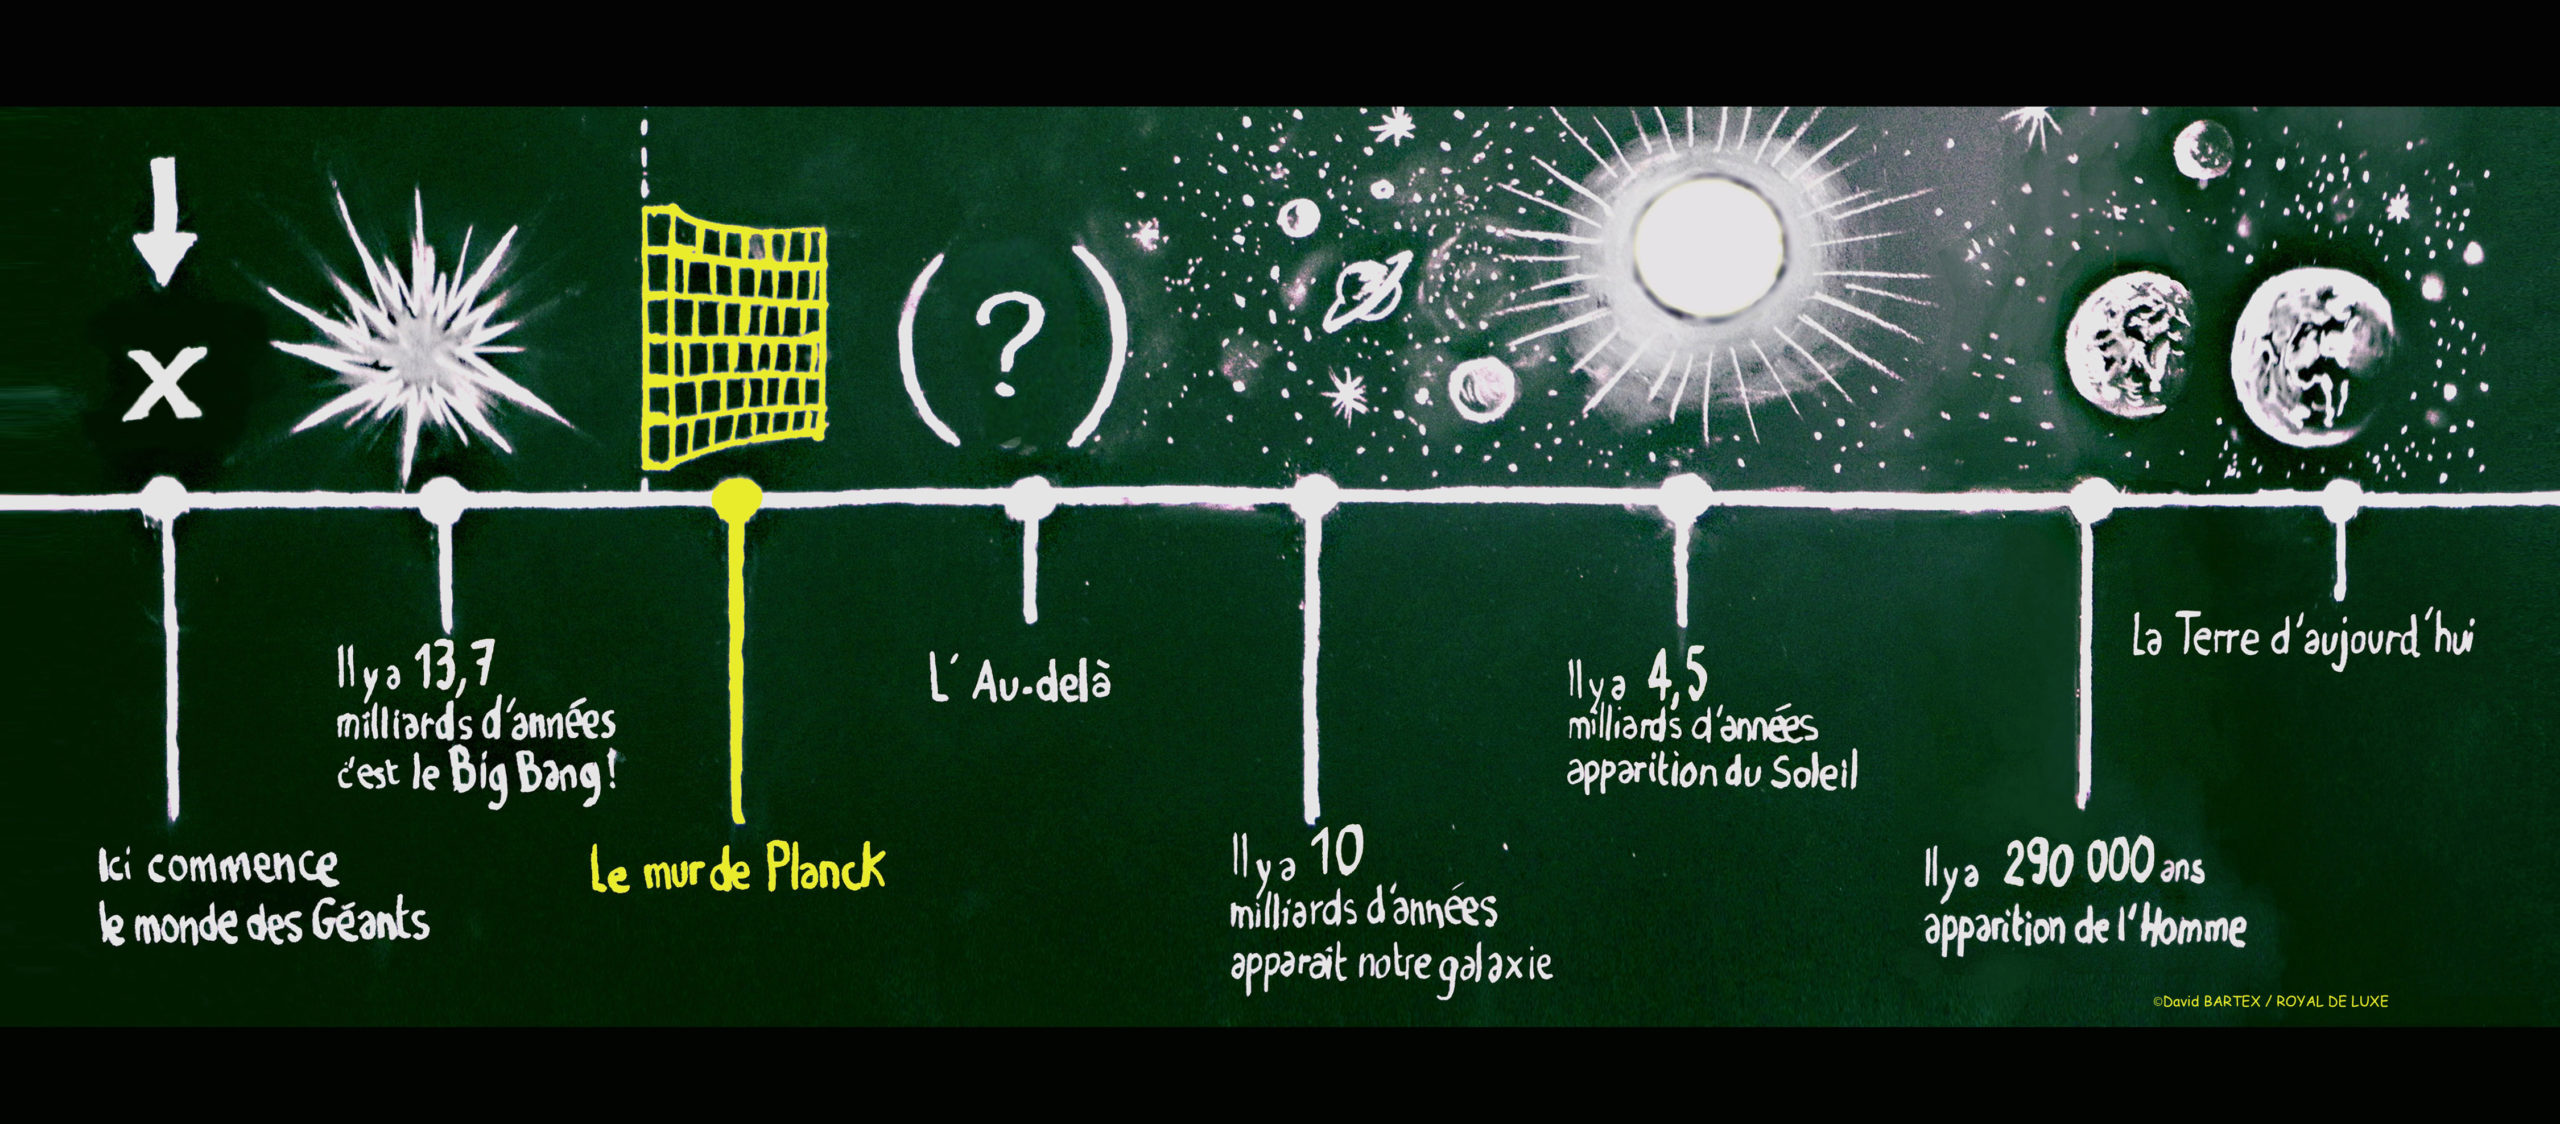 Ici commence
le monde des Géants
Il y a 13,7
milliards d'années
c'est le Big Bang!
Le mur de Planck
?
L'Au-delà
Il y a 10
milliards d'années
apparaît notre galaxie
Il y a 4,5
milliards d'années
apparition du Soleil
Il y a 290 000 ans
apparition de l'Homme
La Terre d'aujourd'hui
x
©David BARTEX / ROYAL DE LUXE